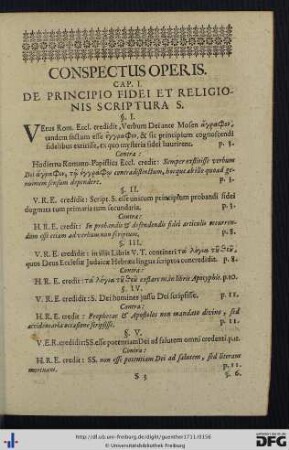 CONSPECTUS OPERIS.
CAP. I.
DE PRINCIPIO FIDEI ET RELIGIO-
NIS SCRIPTURA S.
§. I.
VErus Rom. Eccl. credidit, Verbum Dei ante Mosen ἄγραφον,
tandem factum esse ἔγγραφον, & sic principium cognoscendi
fidelibus extitisse, ex quo mysteria fidei haurirent. p. 1.
Contra:
Hodierna Romano-Papistica Eccl. credit: Semper extitisse verbum
Dei ἄγραφον, τῷ ἐγγράφῳ contradistinctum, hocque ab illo quoad ge-
nuinum sensum dependere. p. 1.
§. II.
V. R. E. credidit: Script. S. esse unicum principium probandi fidei
dogmata tum primaria tum secundaria. p. 5.
Contra:
H. R. E. credit: In probandis & defendendis fidei articulis recurren-
dum esse etiam ad verbum non scriptum. p. 5.
§. III.
V. R. E. credidit: in illis Libris V. T. contineri τὰ λόγια τοῦ Θεοῦ,
quos Deus Ecclesiæ Judaicæ Hebræa lingua scriptos concredidit. p. 8.
Contra:
H. R. E. credit: τὰ λόγια τοῦ Θεοῦ extare in libris Apocryphis. p. 10.
§. IV.
V. R. E. credidit: S. Dei homines jussu Dei scripsisse. p. 11.
Contra:
H. R. E. credit: Prophetas & Apostolos non mandato divino, sed
accidentaria occasione scripsisse. p. 11.
§. V.
V. E. R. credidit: SS. esse potentiam Dei ad salutem omni credenti &c.
Contra:
H. R. E. credit: SS. non esse potentiam Dei ad salutem, sed literam
mortuam. p. 11.
S 3 §. 6.
http://dl.ub.uni-freiburg.de/diglit/guenther1711/0156
DFG